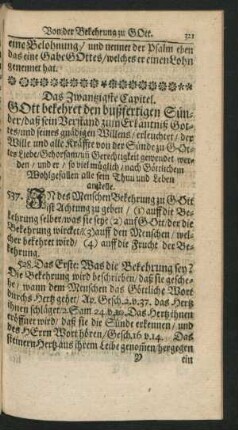 Von der Bekehrung zu GOtt. 321
eine Belohnung/ und nennet der Psalm eben
das eine Gabe GOttes/ welches er einen Lohn
genennet hat.
Das Zwantzigste Capitel.
GOtt bekehret den bußfertigen Sün-
der/ daß sein Verstand zum Erkäntniß Got-
tes/ und seines gnädigen Willens/ erleuchtet/ der
Wille und alle Kräffte von der Sünde zu GOt-
tes Liebe/ Gehorsam uñ Gerechtigkeit gewendet wer-
den/ und er/ so viel müglich/ nach Göttlichem
Wohlgefallen alle sein Thun und Leben
anstelle.
537. IN des Menschen Bekehrung zu GOtt
ist Achtung zu geben/ (1) auff die Be-
kehrung selber/ was sie sey: (2) auf GOtt/ der die
Bekehrung wircket: (3) auff den Menschen/ wel-
cher bekehret wird/ (4) auff die Frucht der Be-
kehrung.
538. Das Erste: Was die Bekehrung sey?
Die Bekehrung wird beschrieben/ daß sie gesche-
he/ wann dem Menschen das Göttliche Wort
durchs Hertz gehet/ Ap. Gesch. 2. v. 37. das Hertz
ihnen schläget/ 2. Sam. 24. v. 10. Das Hertz ihnen
eröffnet wird/ daß sie die Sünde erkennen/ und
des HErrn Wort hören/ Gesch. 16 v. 14. Das
steinern Hertz aus ihrem Leibe genom̃en/ hergegen
ein